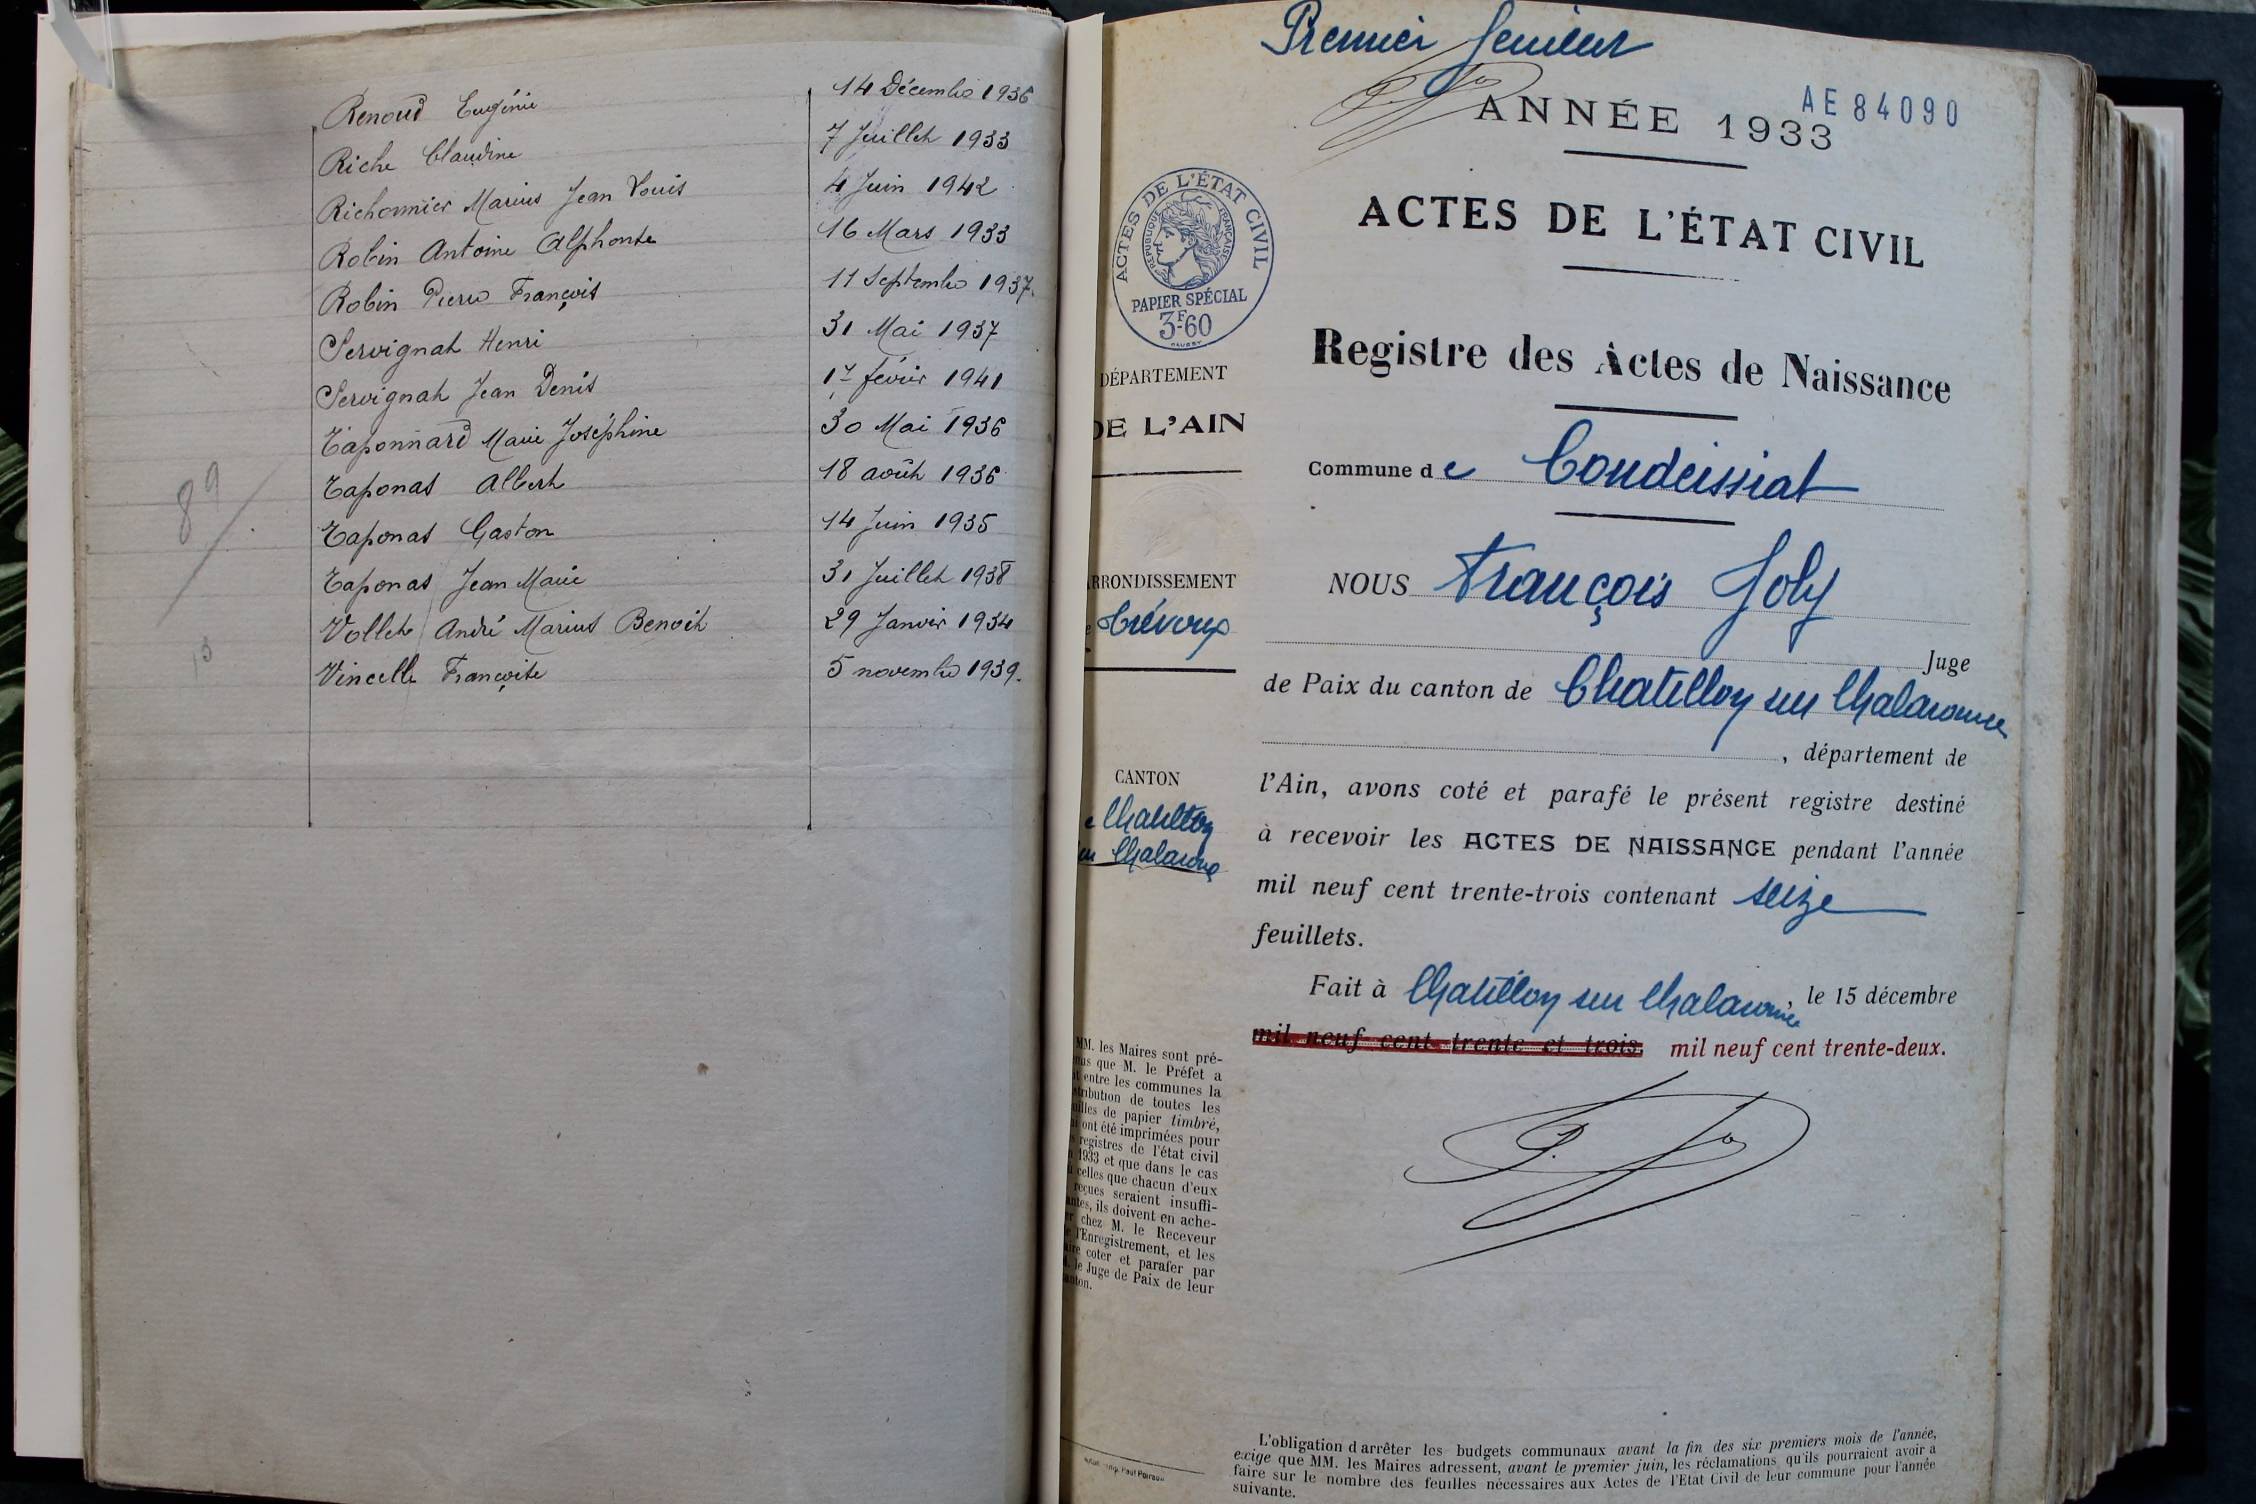 Renoud Eugénie 14 Décembre 1936
Riche Claudine 7 Juillet 1933
Richonnier Marius Jean Louis 4 Juin 1942
Robin Antoine Alphonse 16 Mars 1933
Robin Pierre François 11 Septembre 1937.
Servignat Henri 31 Mai 1937
Servignat Jean Denis 1er février 1941
Taponnard Marie Joséphine 30 Mai 1936
Taponas Albert 18 août 1936
Taponas Gaston 14 Juin 1935
Taponas Jean Marie 31 Juillet 1938
Vollet André Marius Benoit 29 Janvier 1934
Vincelle Françoise 5 novembre 1939.
89
13
Premier feuillet
AE 84090
ANNÉE 1933
ACTES DE L'ÉTAT CIVIL
ACTES DE L'ÉTAT CIVIL
RÉPUBLIQUE FRANÇAISE
PAPIER SPÉCIAL
3F-60
DÉPARTEMENT
DE L'AIN
ARRONDISSEMENT
e Trévoux
CANTON
e Chatillon
sur Chalaronne
MM. les Maires sont pré-
nus que M. le Préfet a
t entre les communes la
stribution de toutes les
uilles de papier timbré,
i ont été imprimées pour
s registres de l'état civil
n 1933 et que dans le cas
ù celles que chacun d'eux
reçues seraient insuffi-
antes, ils doivent en ache-
er chez M. le Receveur
e l'Enregistrement, et les
aire coter et parafer par
M. le Juge de Paix de leur
anton.
Imp. Paul Poirson
Registre des Actes de Naissance
Commune de Condeissiat
NOUS François Joly
Juge
de Paix du canton de Chatillon sur Chalaronne
, département de
l'Ain, avons coté et parafé le présent registre destiné
à recevoir les ACTES DE NAISSANCE pendant l'année
mil neuf cent trente-trois contenant seize
feuillets.
Fait à Chatillon sur Chalaronne, le 15 décembre
mil neuf cent trente et trois. mil neuf cent trente-deux.
L'obligation d'arrêter les budgets communaux avant la fin des six premiers mois de l'année,
exige que MM. les Maires adressent, avant le premier juin, les réclamations qu'ils pourraient avoir à
faire sur le nombre des feuilles nécessaires aux Actes de l'Etat Civil de leur commune pour l'année
suivante.